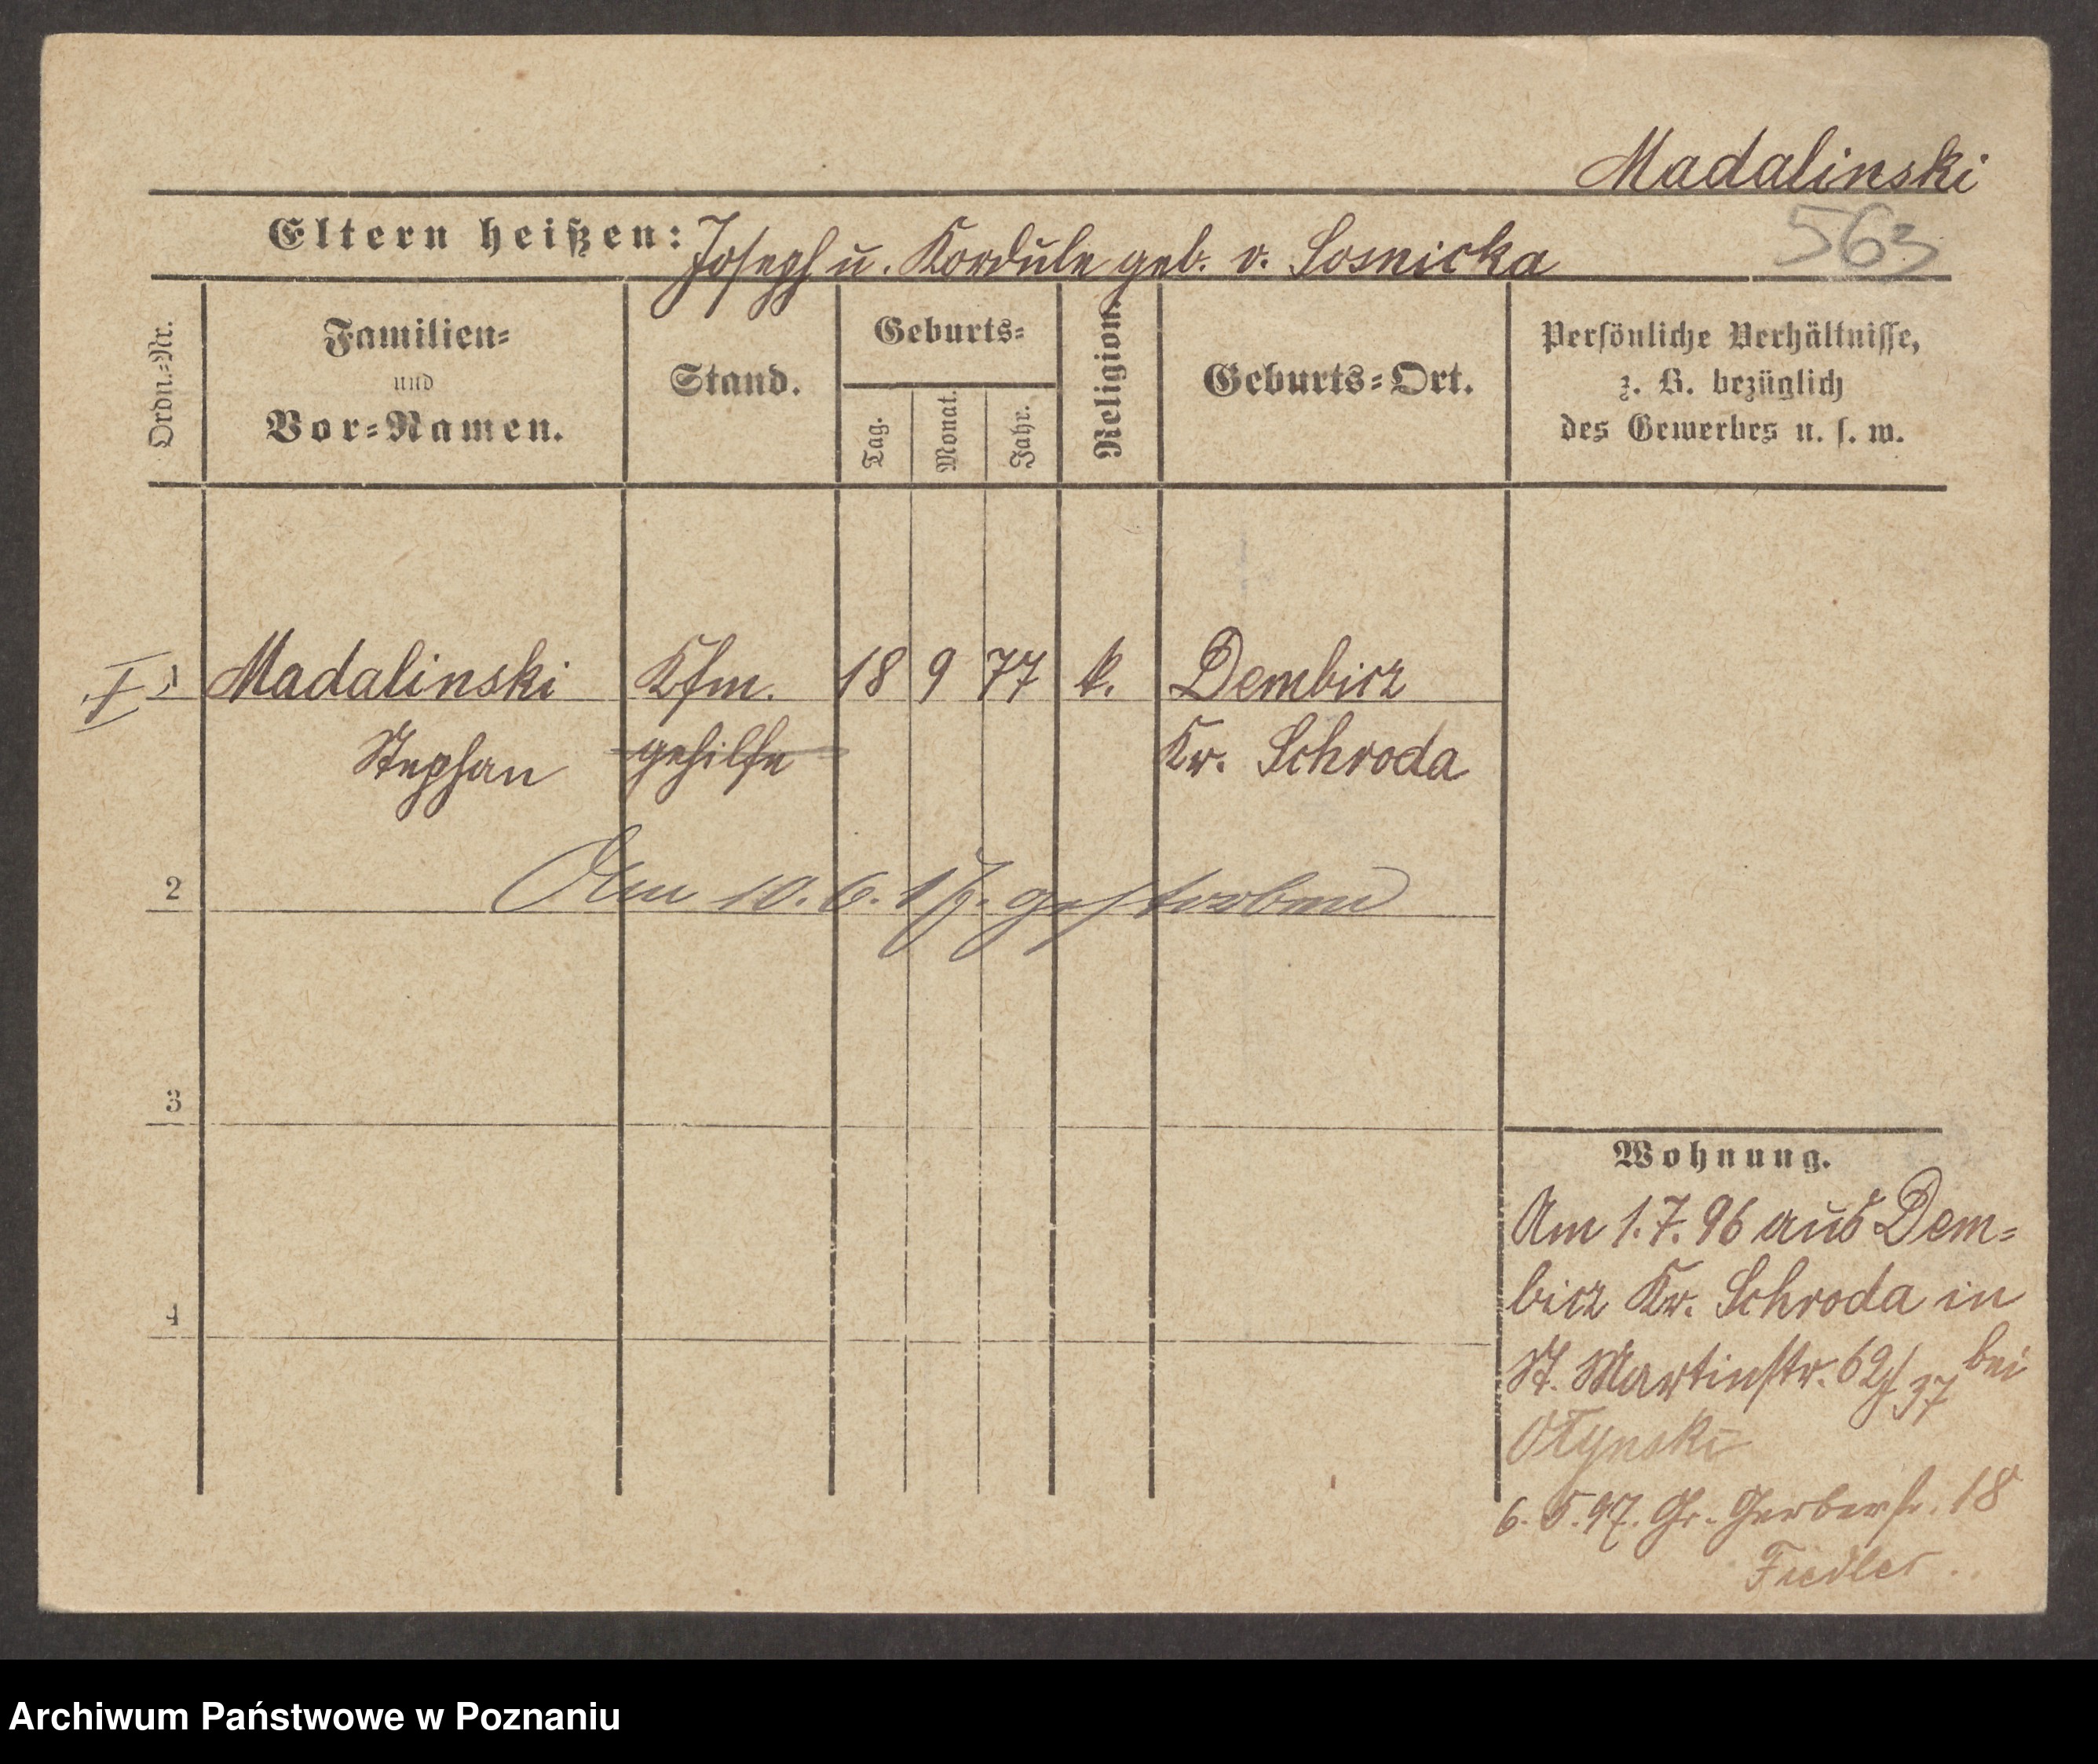 Madalinski
Eltern heißen: Joseph u. Kordula geb. v. Sosnicka
563
Ordn.-Nr.
Familien-
und
Vor-Namen.
Stand.
Geburts-
Tag.
Monat.
Jahr.
Religion.
Geburts-Ort.
Persönliche Verhältnisse,
z. B. bezüglich
des Gewerbes u. s. w.
1 Madalinski Kfm. 18 9 77 k. Dembicz
Stephan gehilfe Kr. Schroda
2
Am 10. 6. gestorben
3
4
Wohnung.
Am 1.7.96 aus Dem-
bicz Kr. Schroda in
St. Martinstr. 62/37 bei
6. 5. 97. Gr. Gerberstr. 18
Fiedler
Archiwum Państwowe w Poznaniu